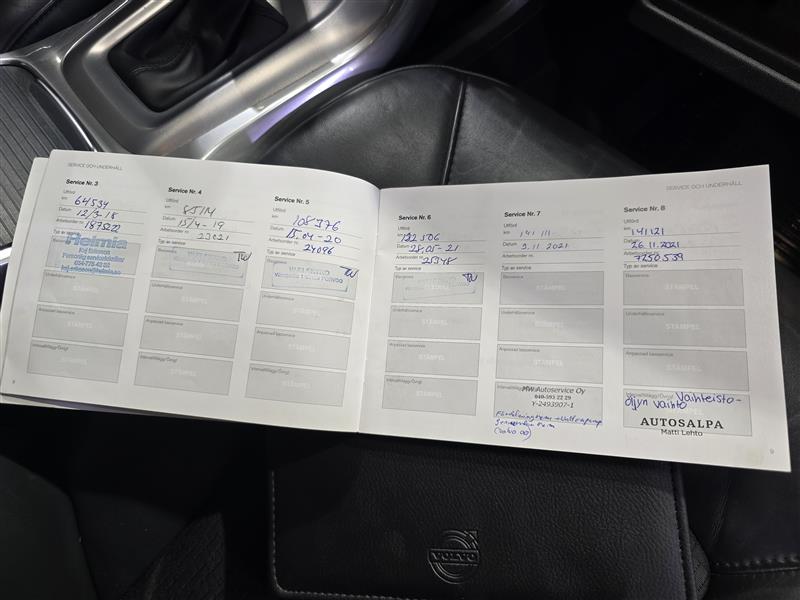 SERVICE OCH UNDERHÅLL
Service Nr. 3
Utförd
km 64534
Datum 12/3-18
Arbetsorder nr. 1875222
Typ av service
Helmia
STÄMPEL
Underhållsservice
STÄMPEL
Anpassad basservice
STÄMPEL
Intervalltillägg/Övrigt
STÄMPEL
8
Service Nr. 4
Utförd
km
Datum 15/4-19
Arbetsorder nr. 23021
Typ av service
Basservice
Underhållsservice
STÄMPEL
Anpassad basservice
STÄMPEL
Intervalltillägg/Övrigt
STÄMPEL
Service Nr. 5
Utförd
km 108376
Datum 15.04-20
Arbetsorder nr. 24096
Typ av service
Basservice
Underhållsservice
STÄMPEL
Anpassad basservice
STÄMPEL
Intervalltillägg/Övrigt
STÄMPEL
Service Nr. 6
Utförd
km 122506
Datum 28.05-21
Arbetsorder nr. 25348
Typ av service
Basservice
Underhållsservice
STÄMPEL
Anpassad basservice
STÄMPEL
Intervalltillägg/Övrigt
STÄMPEL
SERVICE OCH UNDERHÅLL
Service Nr. 7
Utförd
km 141 111
Datum 9.11 2021
Arbetsorder nr.
Typ av service
Basservice
STÄMPEL
Underhållsservice
STÄMPEL
Anpassad basservice
STÄMPEL
Intervalltillägg/Övrigt
MW Autoservice Oy
040-593 22 29
Y-2493907-1
Service Nr. 8
Utförd
km 141121
Datum 26.11.2021
Arbetsorder nr. 7250539
Typ av service
Basservice
STÄMPEL
Underhållsservice
STÄMPEL
Anpassad basservice
STÄMPEL
Intervalltillägg/Övrigt Vaihteisto-
öljyn vaihto
AUTOSALPA
Matti Lehto
9
VOLVO